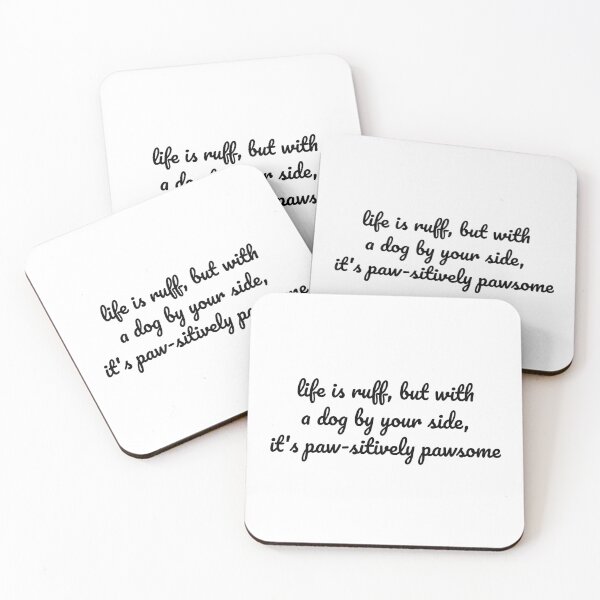 life is ruff, but with
a side,
life is ruff, but with
a dog by your side,
it's paw-sitively pawsome
life is ruff, but with
a dog by your side,
it's paw-sitively
life is ruff, but with
a dog by your side,
it's paw-sitively pawsome